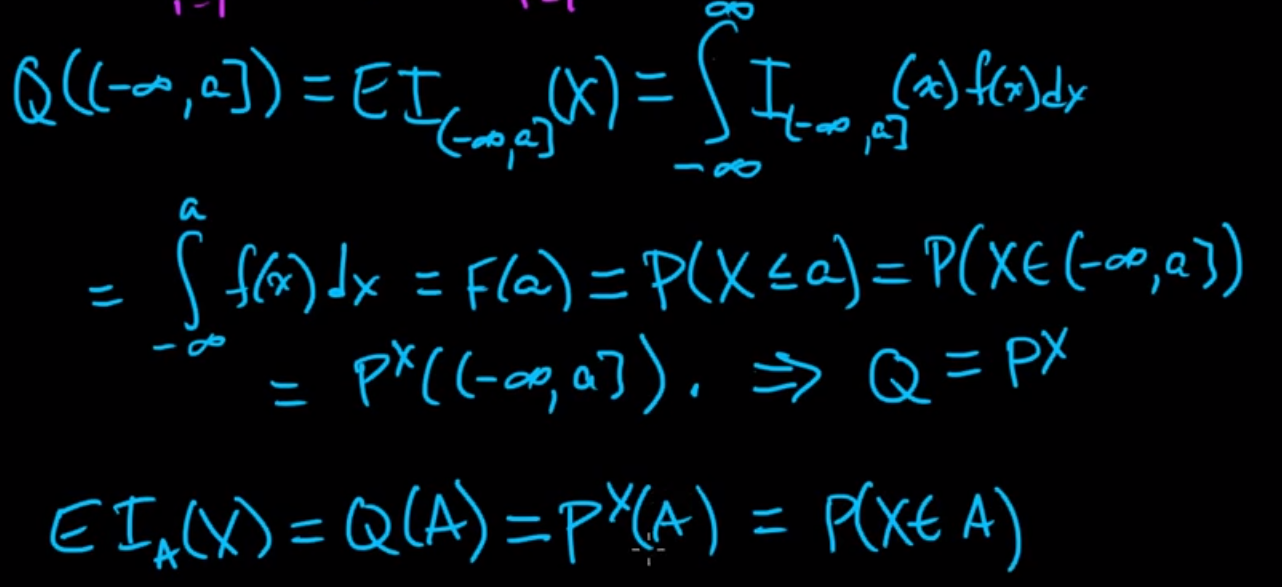 Q((-∞,a]) = E I_{(-∞,a]}(X) = ∫_{-∞}^{∞} I_{(-∞,a]}(x) f(x)dx
= ∫_{-∞}^{a} f(x)dx = F(a) = P(X≤a) = P(X∈(-∞,a])
= P^X((-∞,a]). ⇒ Q = P^X
E I_A(X) = Q(A) = P^X(A) = P(X∈A)